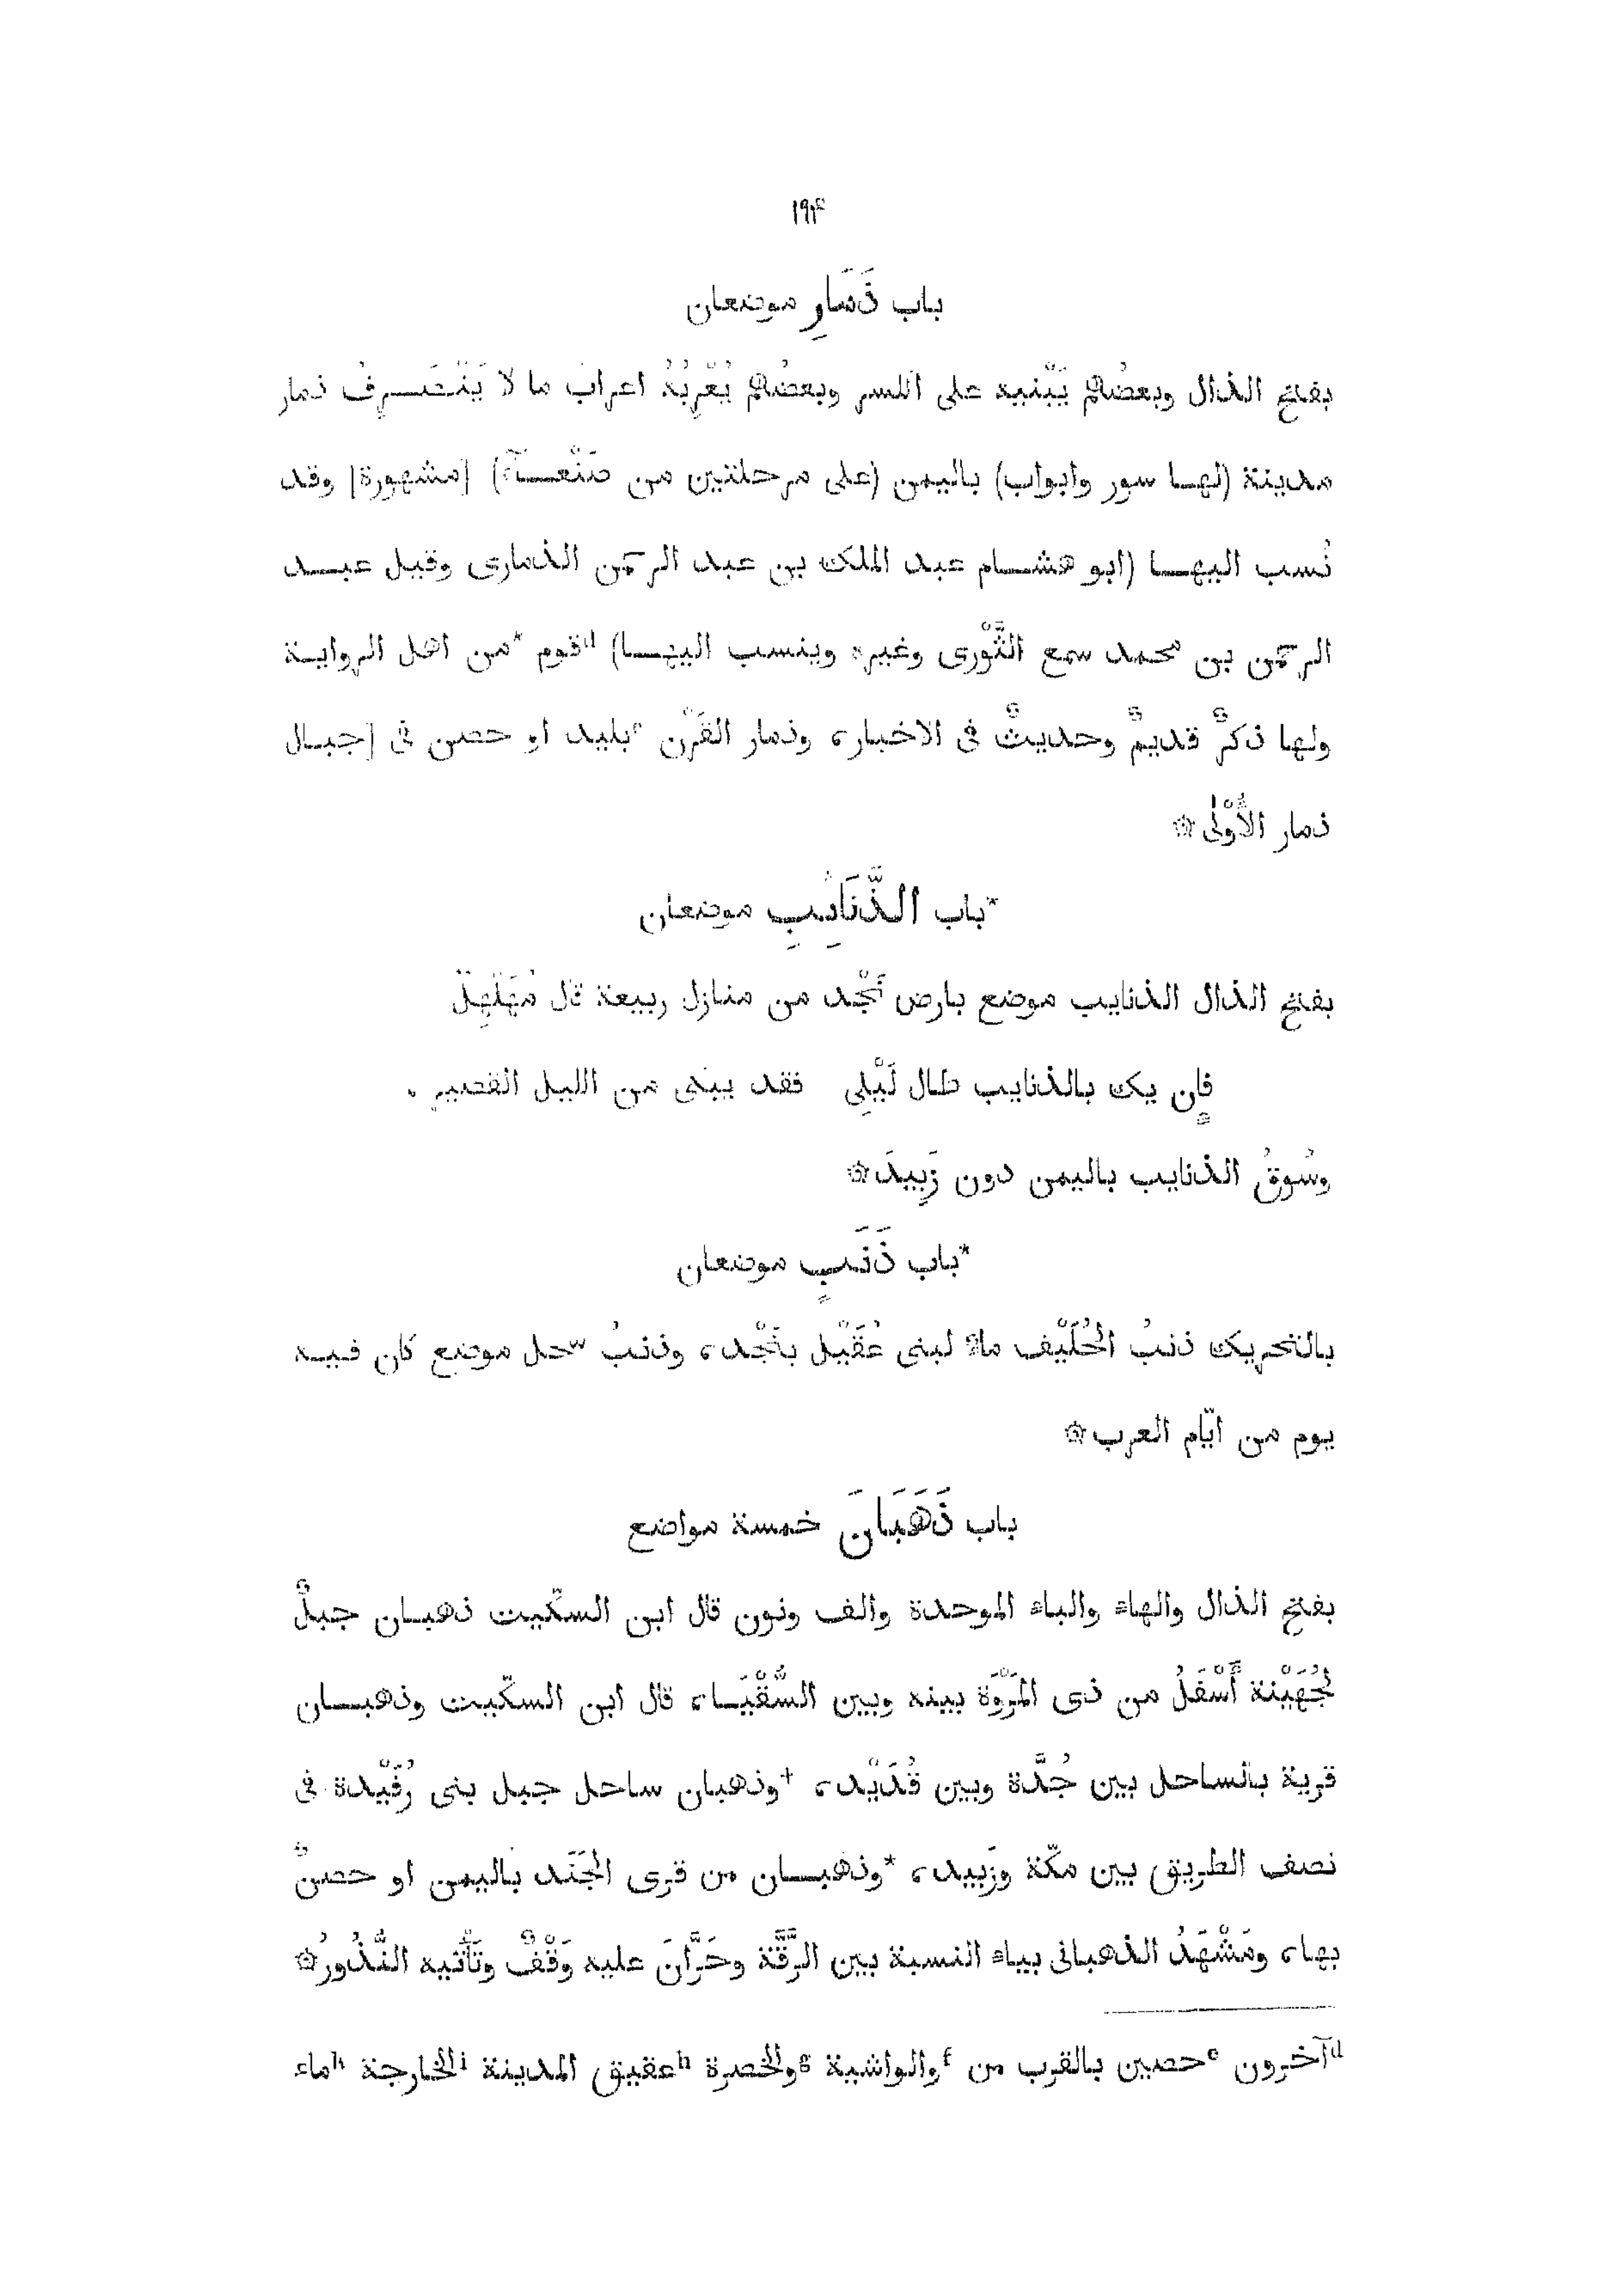 ١٩٤
باب ذَمَارِ موضعان
بفتح الذال وبعضُهم يَبْنيه على الكسر وبعضُهم يُعْرِبُهُ اعرابَ ما لا يَنْصَرِفُ ذمار
مدينة (لها سور وابواب) باليمن (على مرحلتين من صَنْعآءَ) [مشهورة] وقد
نُسب اليها (ابو هشام عبد الملك بن عبد الرحمن الذمارى وقيل عبد
الرحمن بن محمد سمع الثَّوْرى وغيره وينسب اليها) dقوم *من اهل الرواية
ولها ذكرٌ قديمٌ وحديثٌ فى الاخبار، وذمار القَرْن eبليد او حصن فى [جبال
ذمار الأُوْلَى۞
*باب الذَّنَايِبِ موضعان
بفتح الذال الذنايب موضع بارض نَجْد من منازل ربيعة قال مُهَلْهِلٌ
فإن يك بالذنايب طال لَيْلِى فقد يبكى من الليل القصير،
وسُوقُ الذنايب باليمن دون زَبِيدَ۞
*باب ذَنَبٍ موضعان
بالتحريك ذنبُ الحُلَيْف ماءٌ لبنى عُقَيْل بنَجْد، وذنبُ سحل موضع كان فيه
يوم من ايّام العرب۞
باب ذَهَبَانَ خمسة مواضع
بفتح الذال والهاء والباء الموحدة والف ونون قال ابن السكّيت ذهبان جبلٌ
لجُهَيْنة أَسْفَلُ من ذى المَرْوَة بينه وبين السُّقْيَاء، قال ابن السكّيت وذهبان
قرية بالساحل بين جُدَّة وبين قُدَيْد، †وذهبان ساحل جبل بنى رُفَيْدة فى
نصف الطريق بين مكّة وزَبيد، *وذهبان من قرى الجَنَد باليمن او حصنٌ
بها، ومَشْهَدُ الذهبانى بياء النسبة بين الرَّقَّة وحَرَّانَ عليه وَقْفٌ وتَأْتيه النُّذُورُ۞
dآخرون eحصين بالقرب من fوالواشية gوالخصرة hعقيق المدينة iالخارجة kماء